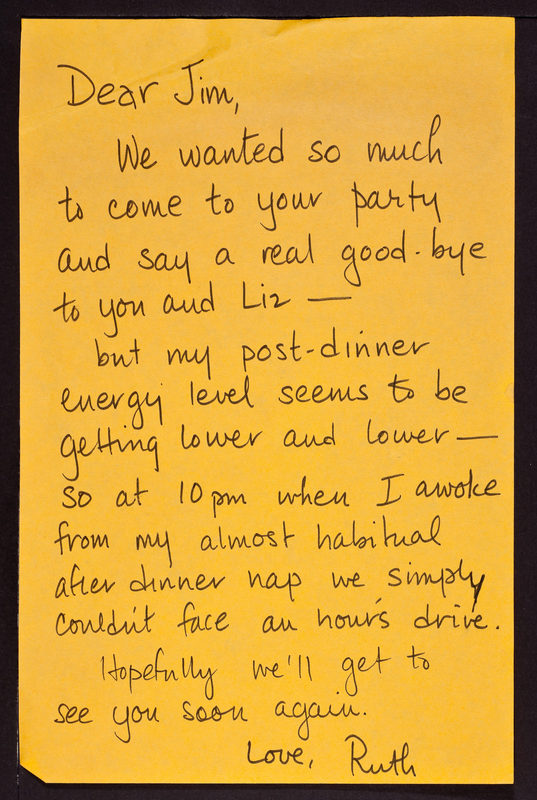 Dear Jim,
We wanted so much
to come to your party
and say a real good-bye
to you and Liz —
but my post-dinner
energy level seems to be
getting lower and lower —
so at 10 pm when I awoke
from my almost habitual
after dinner nap we simply
couldn't face an hour's drive.
Hopefully we'll get to
see you soon again.
Love, Ruth